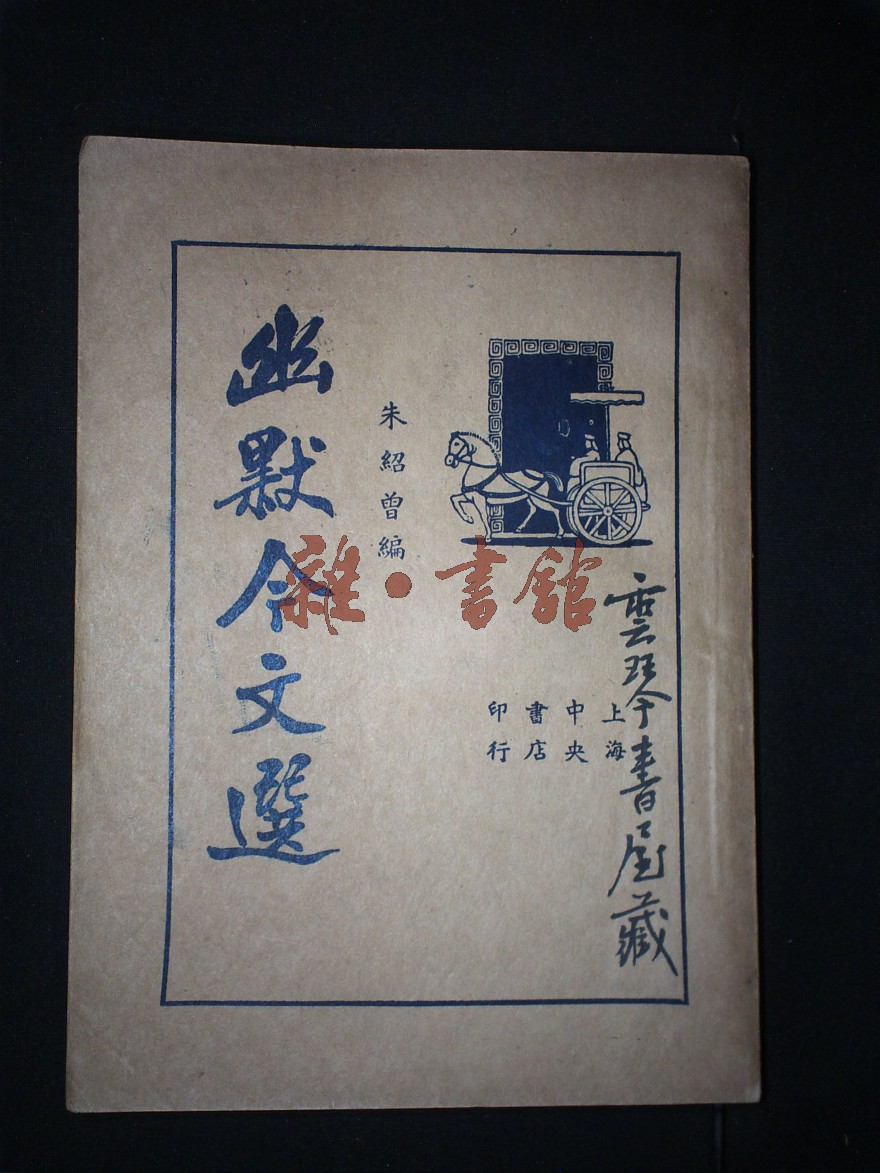 雲琴書屋藏
上海
中央
書店
印行
朱紹曾編
幽默今文選
雜·書館